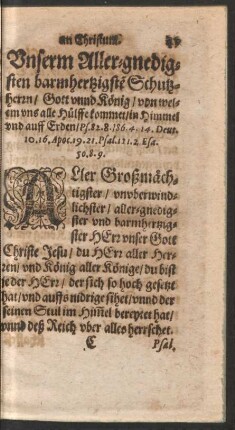 an Christum.
Vnserm Aller-gnedig-
sten barmhertzigstē Schutz-
herrn / Gott vnnd König / von wel-
em vns alle Hülffe kommet / in Himmel
vnd auff Erden / Ps. 82. 8. 186. 4. 14. Deut.
10. 16. Apoc. 19. 21. Psal. 121. 2. Esa.
50. 8. 9.
ALler Großmäch-
tigster / vnvberwind-
lichster / aller-gnedig-
ster vnd barmhertzig-
ster HErr vnser Gott
Christe Jesu / du HErr aller Her-
ren / vnd König aller Könige / du bist
je der HErr / der sich so hoch gesetzt
hat / vnd auffs nidrige sihet / vnnd der
seinen Stul im Him̄el bereytet hat /
vnnd deß Reich vber alles herrschet.
C Psal.